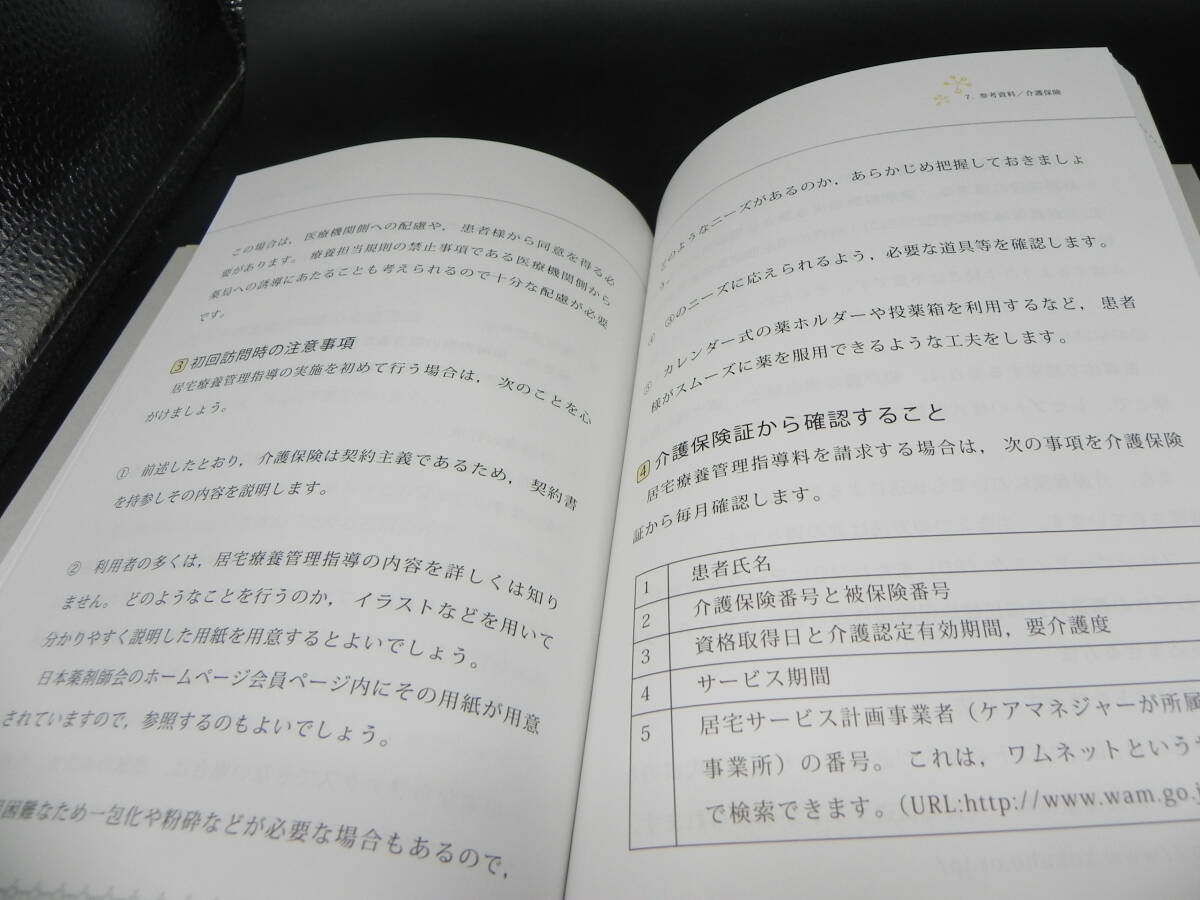 この場合は，医療機関側への配慮や，患者様から同意を得る必
要があります。療養担当規則の禁止事項である医療機関側から
薬局への誘導にあたることも考えられるので十分な配慮が必要
です。
3 初回訪問時の注意事項
居宅療養管理指導の実施を初めて行う場合は，次のことを心
がけましょう。
① 前述したとおり，介護保険は契約主義であるため，契約書
を持参しその内容を説明します。
② 利用者の多くは，居宅療養管理指導の内容を詳しくは知り
ません。どのようなことを行うのか，イラストなどを用いて
分かりやすく説明した用紙を用意するとよいでしょう。
日本薬剤師会のホームページ会員ページ内にその用紙が用意
されていますので，参照するのもよいでしょう。
困難なため一包化や粉砕などが必要な場合もあるので，
7．参考資料／介護保険
どのようなニーズがあるのか，あらかじめ把握しておきましょ
う。
④ ③のニーズに応えられるよう，必要な道具等を確認します。
⑤ カレンダー式の薬ホルダーや投薬箱を利用するなど，患者
様がスムーズに薬を服用できるような工夫をします。
4 介護保険証から確認すること
居宅療養管理指導料を請求する場合は，次の事項を介護保険
証から毎月確認します。
1 患者氏名
2 介護保険番号と被保険番号
3 資格取得日と介護認定有効期間，要介護度
4 サービス期間
5 居宅サービス計画事業者（ケアマネジャーが所属
事業所）の番号。これは，ワムネットという
で検索できます。（URL:http://www.wam.go.j